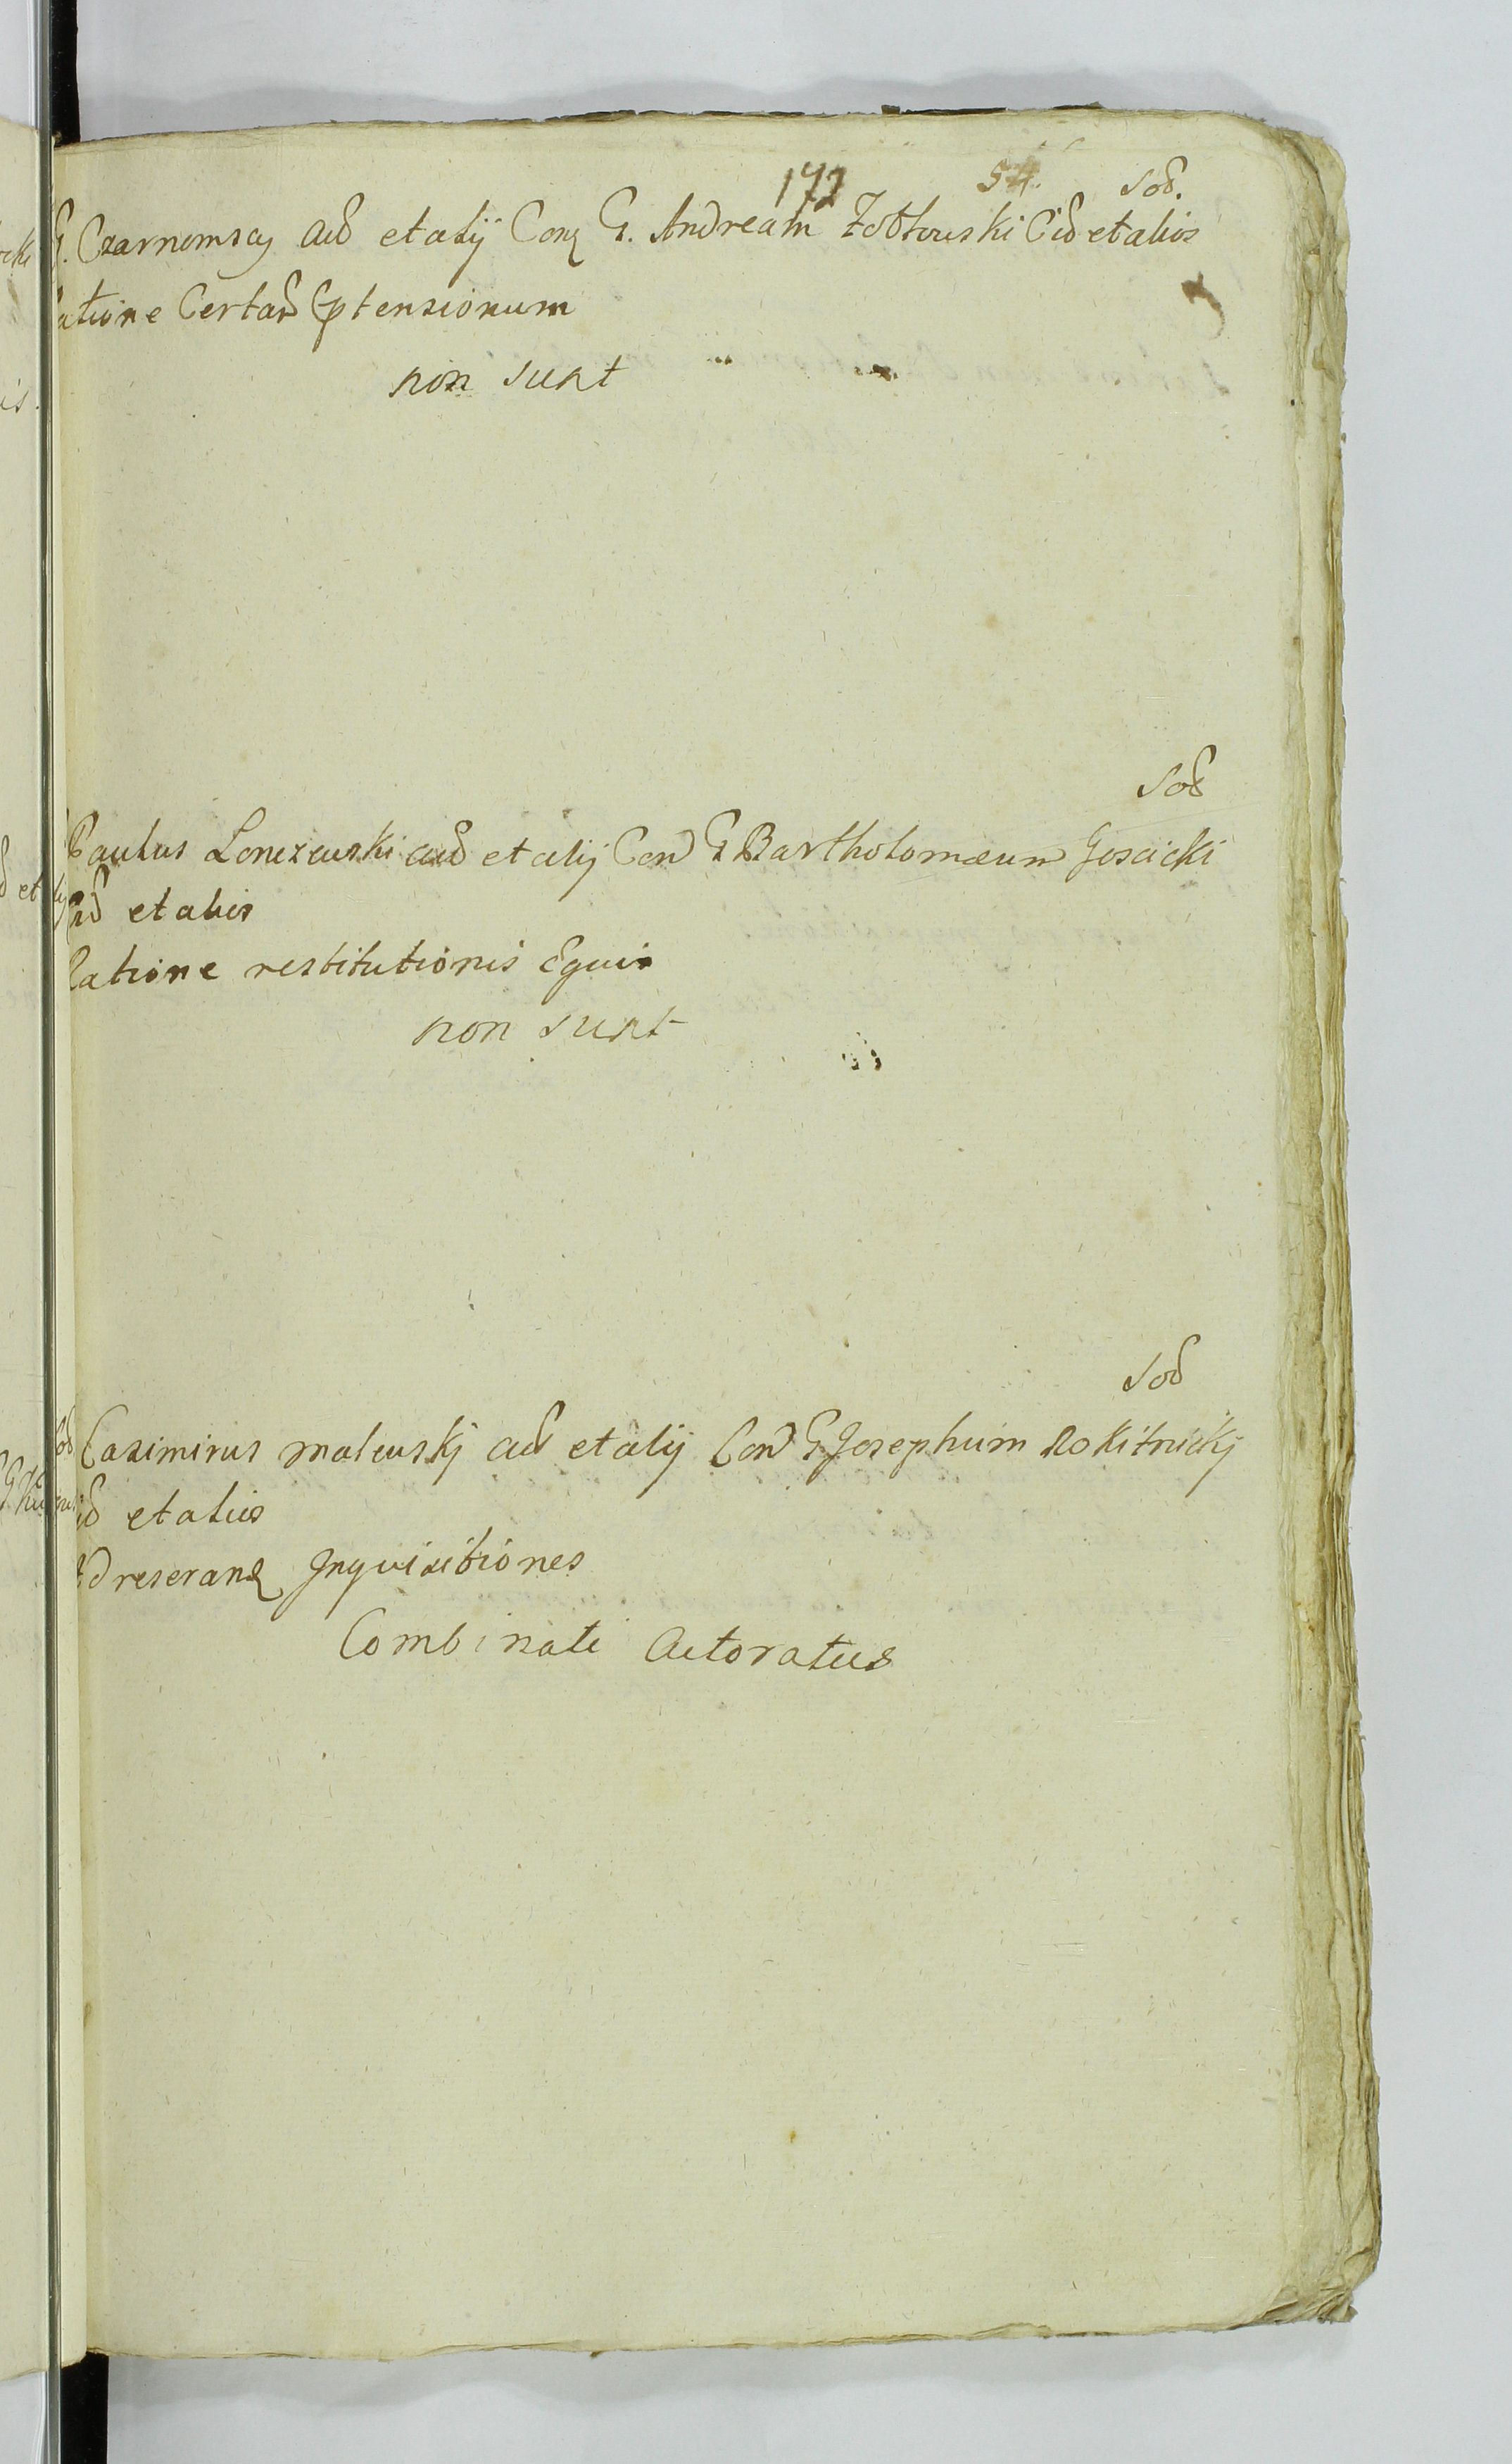 172 54. Sod.
G. Czarnomscy Aud et alij Con G. Andream Zołtowski Cid et alios
Ratione Certar Ptensionum
non sunt
Sod
Paulus Lonczewski aud et alij Con G Bartholomæum Goscicki
Cid et alios
Ratione restitutionis Equi
non sunt
Sod
Casimirus malewskj aud et alij Con G Josephum Rokitnickj
Cid et alios
Ad reseran Jnquisitiones
Combinati Actoratus